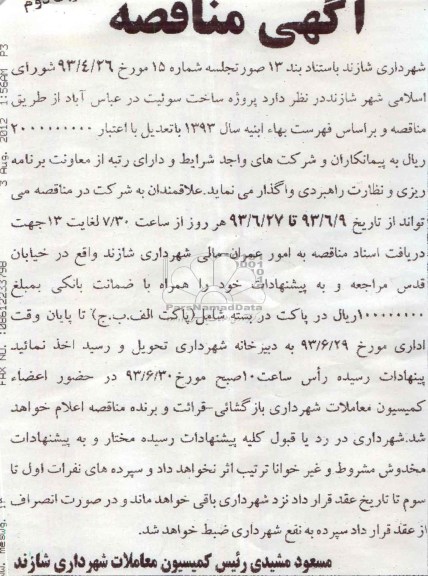 دوم
آگهی مناقصه
شهرداری شازند باستناد بند ۱۳ صورتجلسه شماره ۱۵ مورخ ۹۳/۴/۲۶ شورای
اسلامی شهر شازنددر نظر دارد پروژه ساخت سوئیت در عباس آباد از طریق
مناقصه و براساس فهرست بهاء ابنیه سال ۱۳۹۳ باتعدیل با اعتبار ۲۰۰۰۰۰۰۰۰۰
ریال به پیمانکاران و شرکت های واجد شرایط و دارای رتبه از معاونت برنامه
ریزی و نظارت راهبردی واگذار می نماید.علاقمندان به شرکت در مناقصه می
تواند از تاریخ ۹۳/۶/۹ تا ۹۳/۶/۲۷ هر روز از ساعت ۷/۳۰ لغایت ۱۳جهت
دریافت اسناد مناقصه به امور عمران-مالی شهرداری شازند واقع در خیابان
قدس مراجعه و به پیشنهادات خود را همراه با ضمانت بانکی بمبلغ
۱۰۰۰۰۰۰۰۰ریال در پاکت در بسته شامل(پاکت الف.ب.ج) تا پایان وقت
اداری مورخ ۹۳/۶/۲۹ به دبیرخانه شهرداری تحویل و رسید اخذ نمائید
پینهادات رسیده رأس ساعت۱۰صبح مورخ۹۳/۶/۳۰ در حضور اعضاء
کمیسیون معاملات شهرداری بازگشائی-قرائت و برنده مناقصه اعلام خواهد
شد.شهرداری در رد یا قبول کلیه پیشنهادات رسیده مختار و به پیشنهادات
مخدوش مشروط و غیر خوانا ترتیب اثر نخواهد داد و سپرده های نفرات اول تا
سوم تا تاریخ عقد قرار داد نزد شهرداری باقی خواهد ماند و در صورت انصراف
از عقد قرار داد سپرده به نفع شهرداری ضبط خواهد شد.
مسعود مشیدی رئیس کمیسیون معاملات شهرداری شازند
3 Aug. 2012 1:56AM P3
FAX NO. :08612233798
ParsNamadData